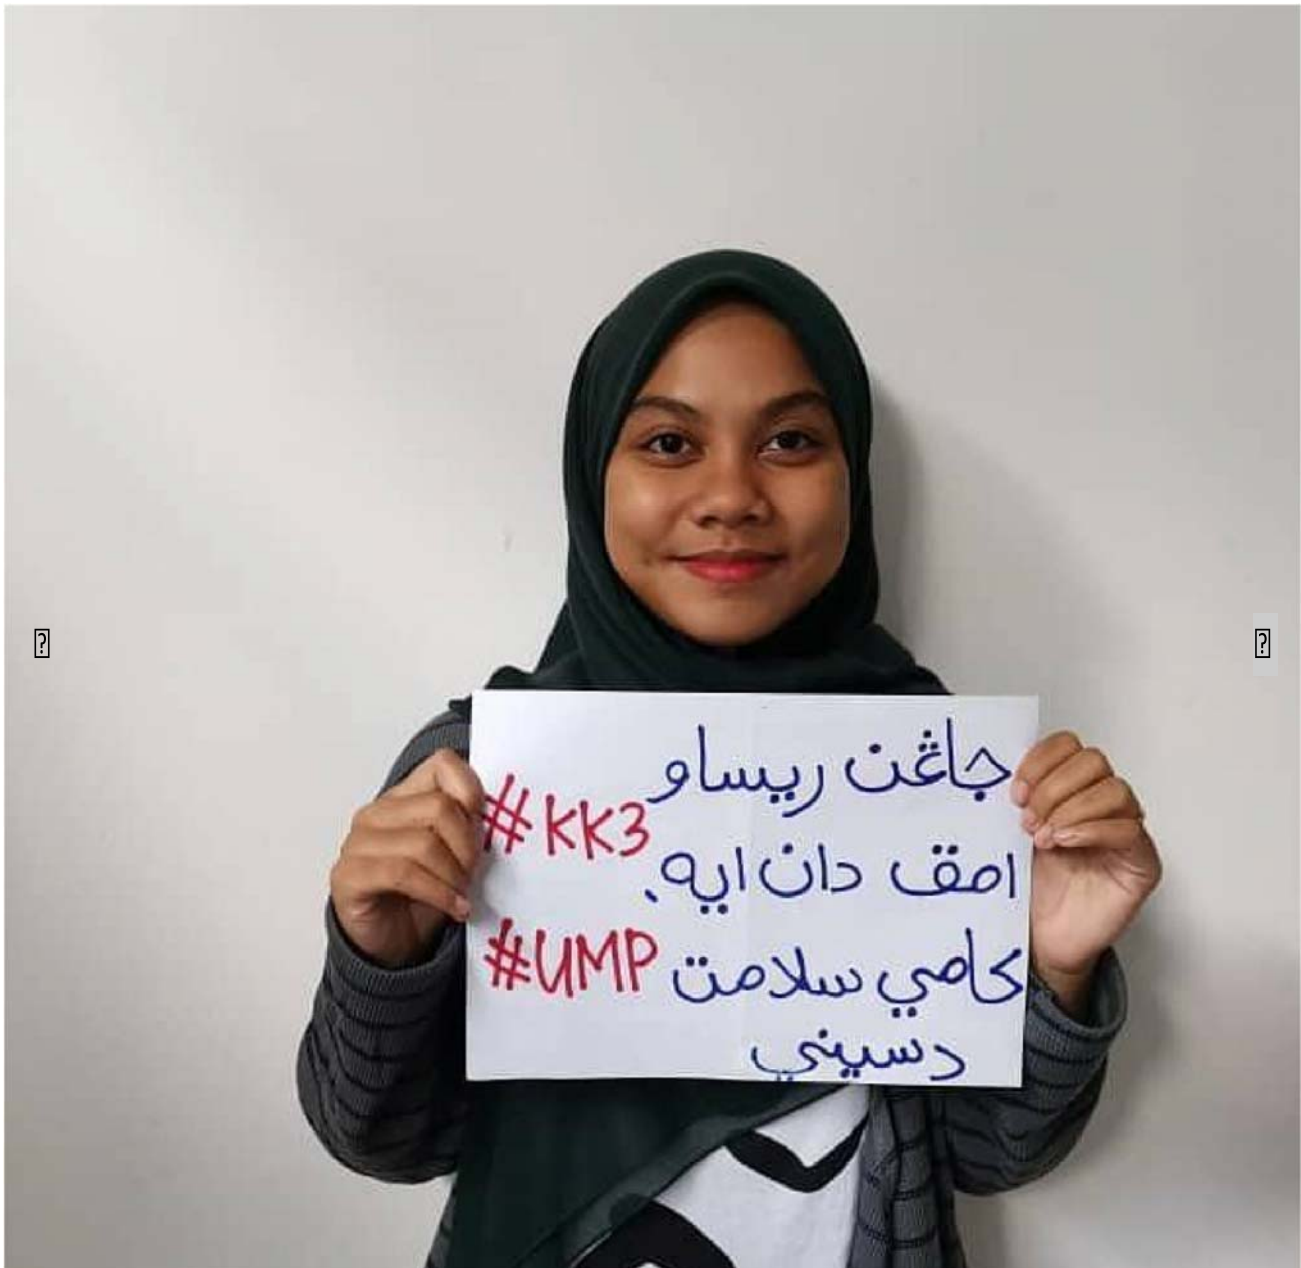 جاڠن ريساو
#KK3
امق دان ايه.
#UMP
کامي سلامت
دسيني